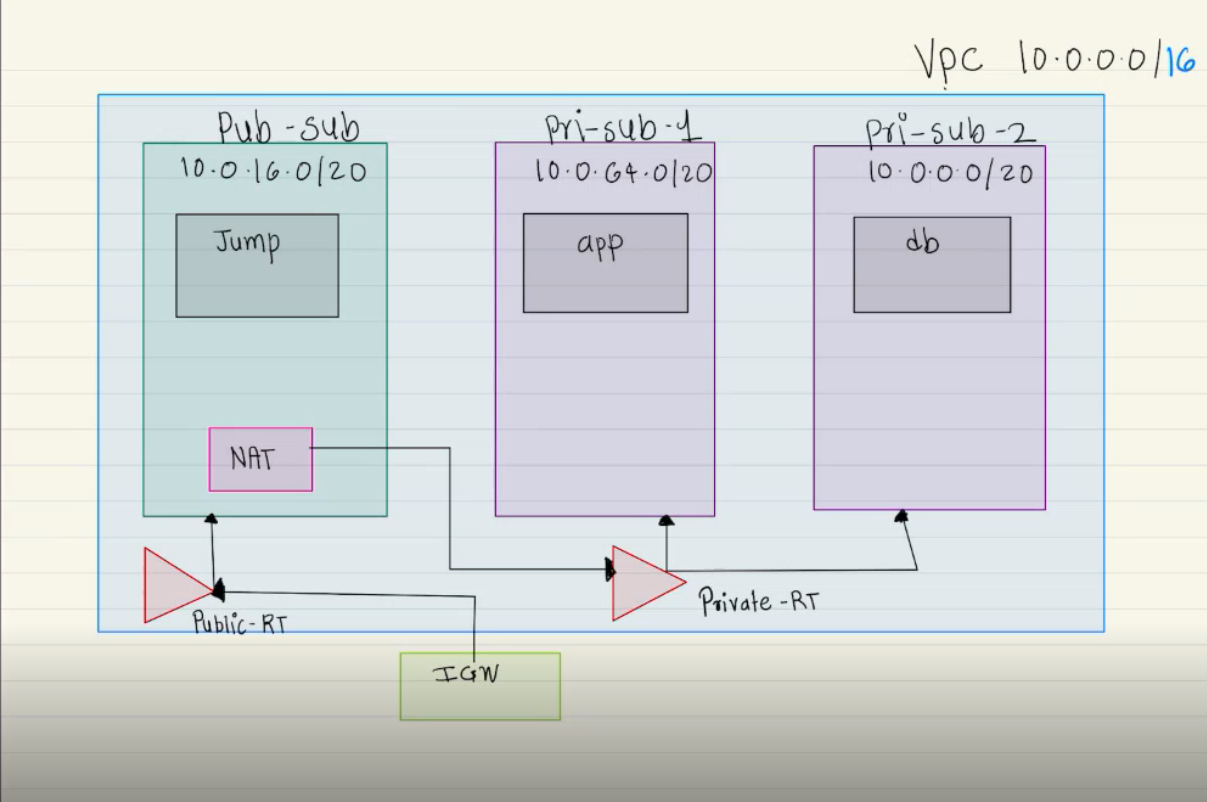 Vpc 10.0.0.0/16
Pub-sub
10.0.16.0/20
Jump
NAT
Pri-sub-1
10.0.64.0/20
app
Pri-sub-2
10.0.0.0/20
db
Public-RT
Private-RT
IGW